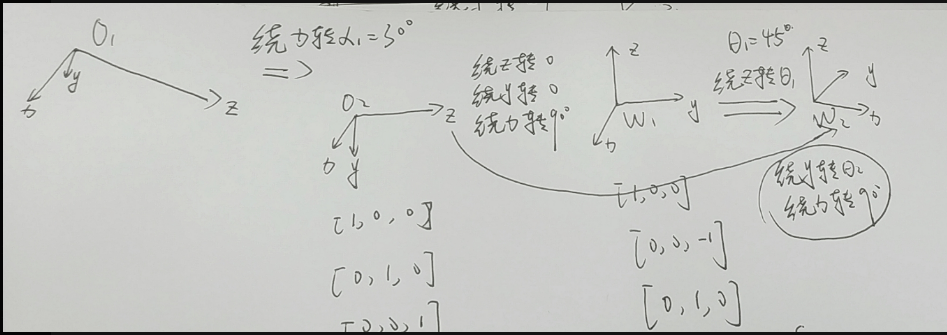 O₁
x
y
z
绕x转α₁=30°
O₂
x
y
z
[1,0,0]
[0,1,0]
[0,0,1]
绕z转0
绕y转0
绕x转90°
z
y
x
W₁
[1,0,0]
[0,0,-1]
[0,1,0]
θ₁=45°
绕z转θ₁
z
y
x
W₂
绕y转θ₂
绕x转90°